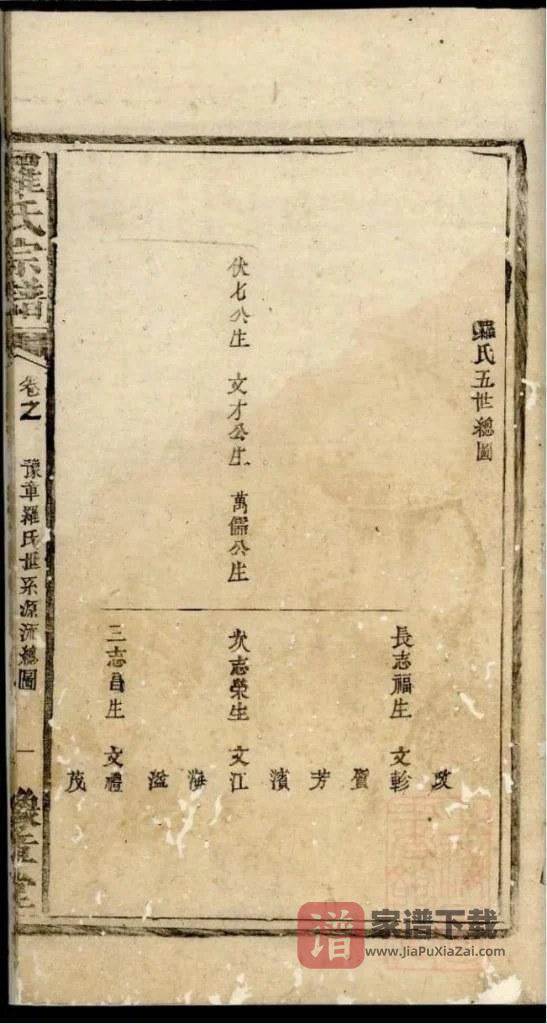 羅氏五世總圖
伏七公生 文才公生 萬儒公生
長志福生 文軫
政
賔
芳
次志榮生 文江
濱
海
溢
三志昌生 文禮
茂
羅氏宗譜
卷之
豫章羅氏世系源流總圖
一
豫章堂
谱 家谱下载
www.JiaPuXiaZai.com